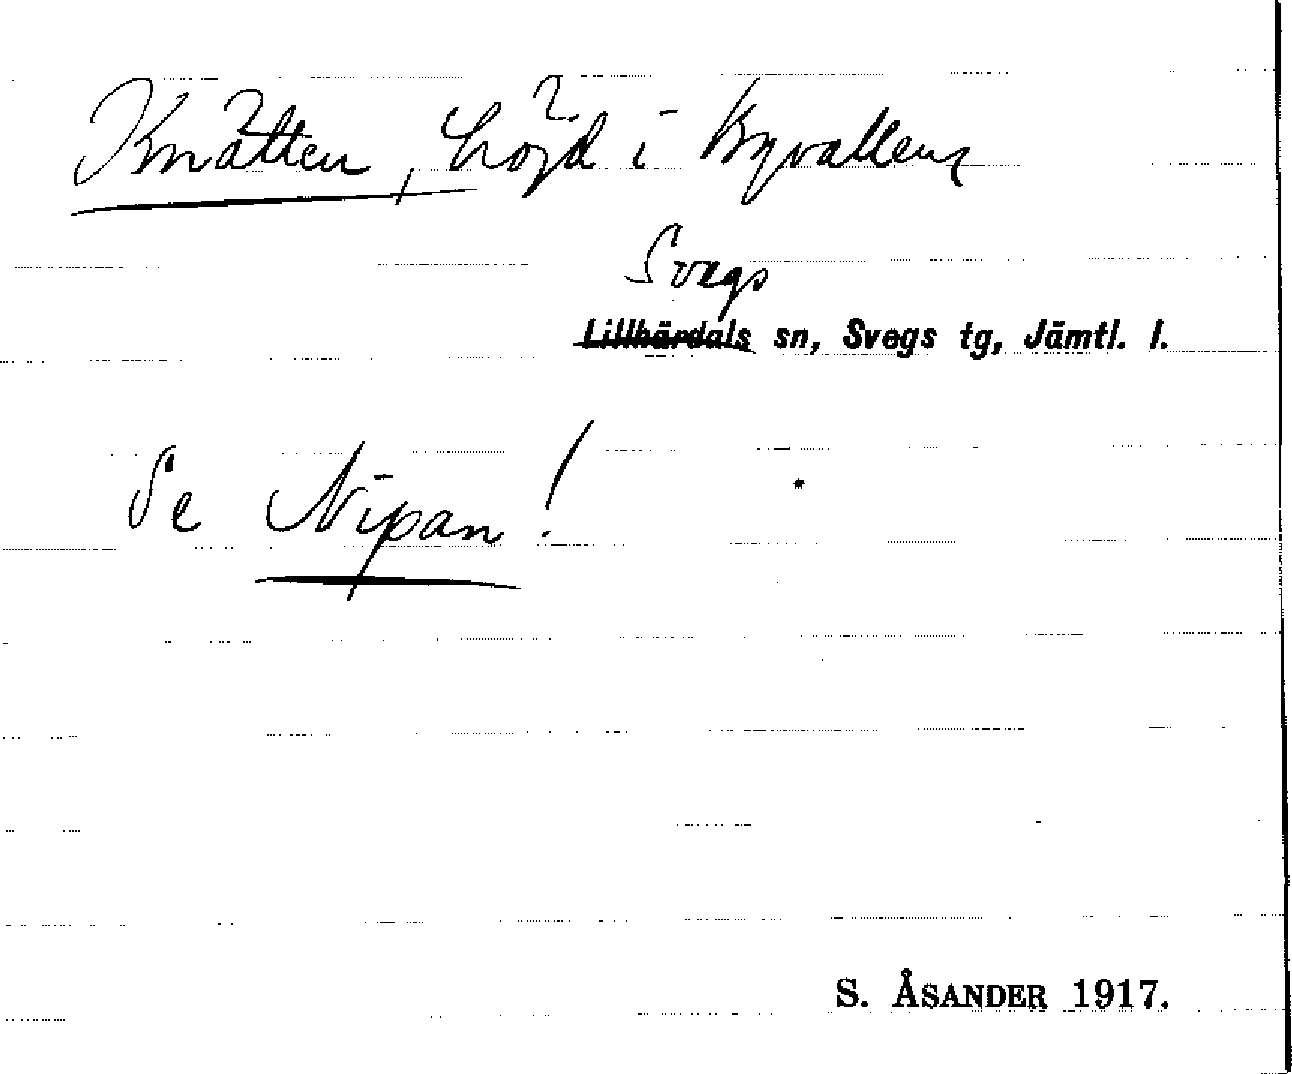 Knätten, höjd i Kyvallens
Svegs
Lillhärdals sn, Svegs tg, Jämtl. l.
Se Nipan!
S. ÅSANDER 1917.